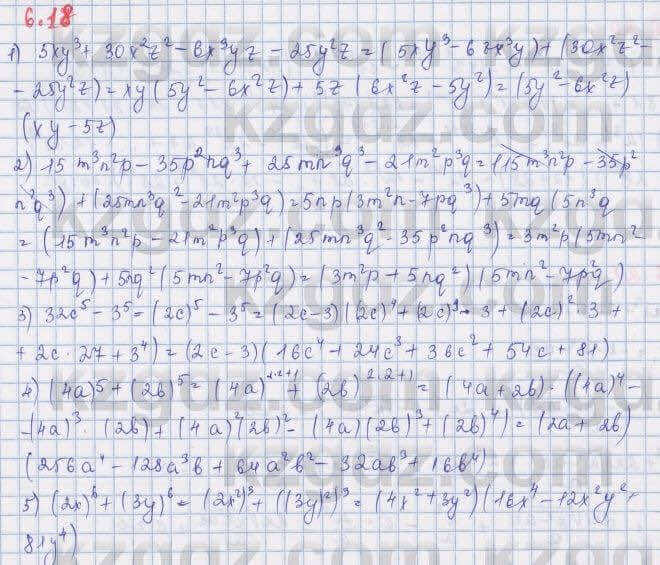 6.18
1) 5xy³ + 30x²z² - 6x³yz - 25y²z = (5xy³ - 6zx³y) + (30x²z² -
- 25y²z) = xy(5y² - 6x²z) + 5z(6x²z - 5y²) = (5y² - 6x²z)
(xy - 5z)
2) 15m³n²p - 35p²nq³ + 25mn³q³ - 21m²p³q = (15m³n²p - 35p²
n²q³) + (25mn³q² - 21m²p³q) = 5np(3m²n - 7pq³) + 5mq(5n³q
= (15m³n²p - 21m²p³q) + (25mn³q² - 35p²nq³) = 3m²p(5mn²
- 7p²q) + 5nq²(5mn² - 7p²q) = (3m²p + 5nq²)(5mn² - 7p²q)
3) 32c⁵ - 3⁵ = (2c)⁵ - 3⁵ = (2c-3)(2c)⁴ + (2c)³ · 3 + (2c)² · 3 +
+ 2c · 27 + 3⁴) = (2c-3)(16c⁴ + 24c³ + 36c² + 54c + 81)
4) (4a)⁵ + (2b)⁵ = (4a)²·²⁺¹ + (2b)²·²⁺¹ = (4a + 2b) · ((4a)⁴ -
- (4a)³ · (2b) + (4a)²(2b)² - (4a)(2b)³ + (2b)⁴) = (2a + 2b)
(256a⁴ - 128a³b + 64a²b² - 32ab³ + 16b⁴)
5) (2x)⁶ + (3y)⁶ = (2x²)³ + ((3y)²)³ = (4x² + 3y²)(16x⁴ - 12x²y² +
81y⁴)
kzgdz.com